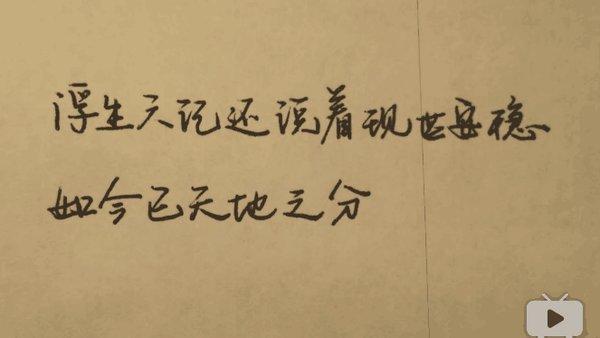 浮生六记还说着现世安稳
如今已天地之分